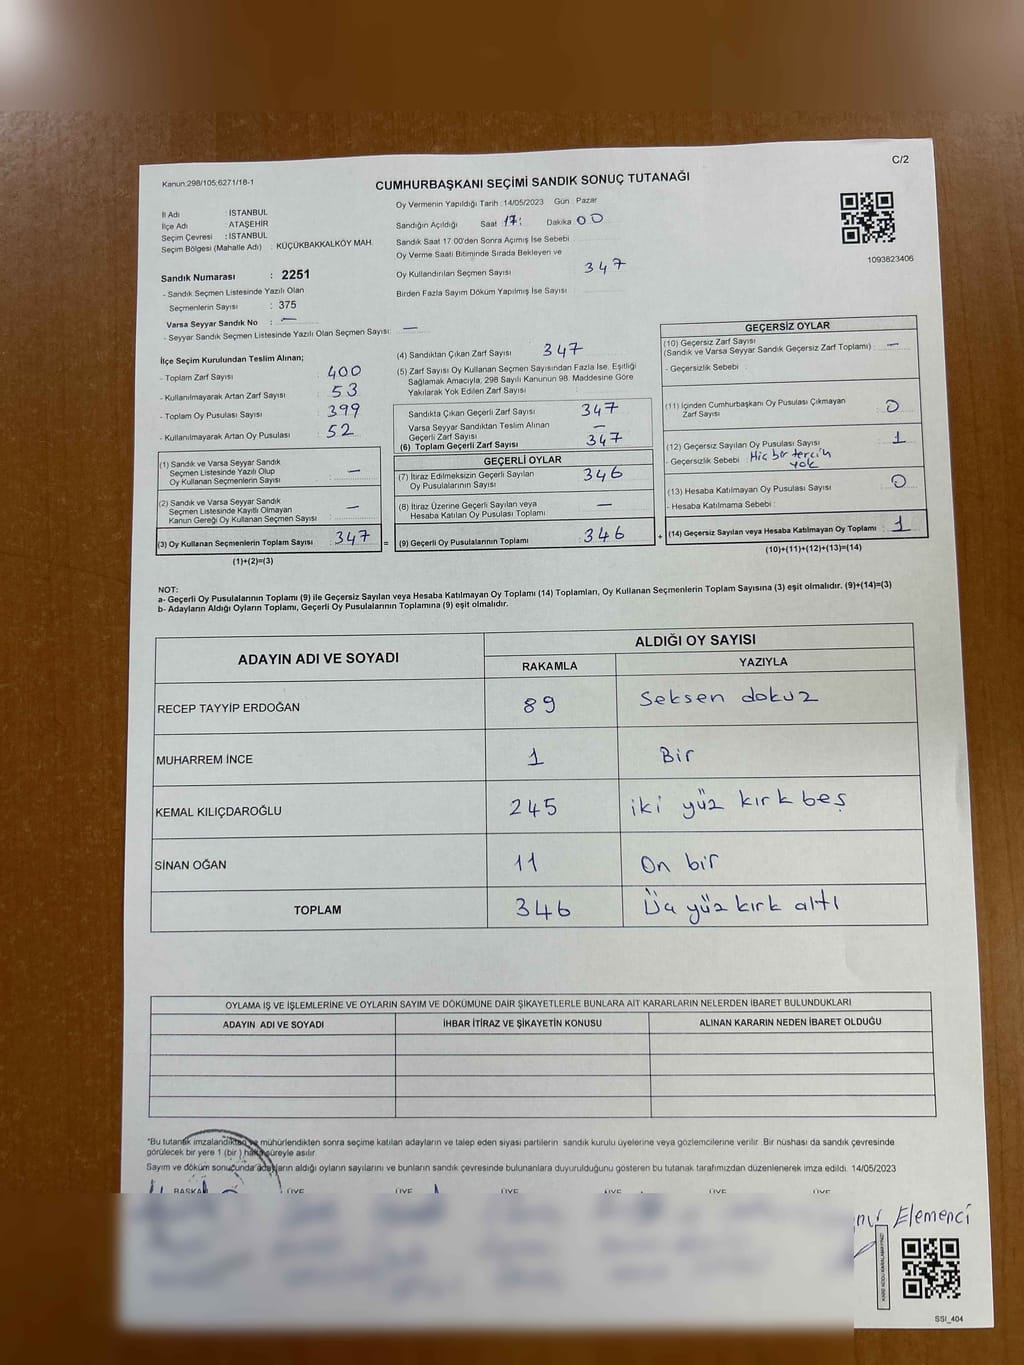 C/2
Kanun:298/105;6271/18-1
CUMHURBAŞKANI SEÇİMİ SANDIK SONUÇ TUTANAĞI
İl Adı : İSTANBUL
İlçe Adı : ATAŞEHİR
Seçim Çevresi : İSTANBUL
Seçim Bölgesi (Mahalle Adı) : KÜÇÜKBAKKALKÖY MAH.
Sandık Numarası : 2251
- Sandık Seçmen Listesinde Yazılı Olan
Seçmenlerin Sayısı : 375
Varsa Seyyar Sandık No : —
- Seyyar Sandık Seçmen Listesinde Yazılı Olan Seçmen Sayısı: —
Oy Vermenin Yapıldığı Tarih :14/05/2023 Gün : Pazar
Sandığın Açıldığı Saat 17: Dakika 00
Sandık Saat 17:00'den Sonra Açımış İse Sebebi
Oy Verme Saati Bitiminde Sırada Bekleyen ve
Oy Kullandırılan Seçmen Sayısı 347
Birden Fazla Sayım Döküm Yapılmış İse Sayısı :
1093823406
İlçe Seçim Kurulundan Teslim Alınan;
- Toplam Zarf Sayısı : 400
- Kullanılmayarak Artan Zarf Sayısı : 53
- Toplam Oy Pusulası Sayısı : 399
- Kullanılmayarak Artan Oy Pusulası : 52
(1) Sandık ve Varsa Seyyar Sandık
Seçmen Listesinde Yazılı Olup
Oy Kullanan Seçmenlerin Sayısı : —
(2) Sandık ve Varsa Seyyar Sandık
Seçmen Listesinde Kayıtlı Olmayan
Kanun Gereği Oy Kullanan Seçmen Sayısı : —
(3) Oy Kullanan Seçmenlerin Toplam Sayısı : 347 =
(1)+(2)=(3)
(4) Sandıktan Çıkan Zarf Sayısı : 347
(5) Zarf Sayısı Oy Kullanan Seçmen Sayısından Fazla İse, Eşitliği
Sağlamak Amacıyla; 298 Sayılı Kanunun 98. Maddesine Göre
Yakılarak Yok Edilen Zarf Sayısı :
Sandıkta Çıkan Geçerli Zarf Sayısı : 347
Varsa Seyyar Sandıktan Teslim Alınan
Geçerli Zarf Sayısı : —
(6) Toplam Geçerli Zarf Sayısı : 347
GEÇERLİ OYLAR
(7) İtiraz Edilmeksizin Geçerli Sayılan
Oy Pusulalarının Sayısı : 346
(8) İtiraz Üzerine Geçerli Sayılan veya
Hesaba Katılan Oy Pusulası Toplamı : —
(9) Geçerli Oy Pusulalarının Toplamı : 346 +
GEÇERSİZ OYLAR
(10) Geçersiz Zarf Sayısı
(Sandık ve Varsa Seyyar Sandık Geçersiz Zarf Toplamı) : —
- Geçersizlik Sebebi :
(11) İçinden Cumhurbaşkanı Oy Pusulası Çıkmayan
Zarf Sayısı : 0
(12) Geçersiz Sayılan Oy Pusulası Sayısı : 1
- Geçersizlik Sebebi : Hiç bir tercih
yok
(13) Hesaba Katılmayan Oy Pusulası Sayısı : 0
- Hesaba Katılmama Sebebi :
(14) Geçersiz Sayılan veya Hesaba Katılmayan Oy Toplamı : 1
(10)+(11)+(12)+(13)=(14)
NOT:
a- Geçerli Oy Pusulalarının Toplamı (9) ile Geçersiz Sayılan veya Hesaba Katılmayan Oy Toplamı (14) Toplamları, Oy Kullanan Seçmenlerin Toplam Sayısına (3) eşit olmalıdır. (9)+(14)=(3)
b- Adayların Aldığı Oyların Toplamı, Geçerli Oy Pusulalarının Toplamına (9) eşit olmalıdır.
ADAYIN ADI VE SOYADI ALDIĞI OY SAYISI
RAKAMLA YAZIYLA
RECEP TAYYİP ERDOĞAN 89 Seksen dokuz
MUHARREM İNCE 1 Bir
KEMAL KILIÇDAROĞLU 245 iki yüz kırk beş
SİNAN OĞAN 11 On bir
TOPLAM 346 Üç yüz kırk altı
OYLAMA İŞ VE İŞLEMLERİNE VE OYLARIN SAYIM VE DÖKÜMÜNE DAİR ŞİKAYETLERLE BUNLARA AİT KARARLARIN NELERDEN İBARET BULUNDUKLARI
ADAYIN ADI VE SOYADI İHBAR İTİRAZ VE ŞİKAYETİN KONUSU ALINAN KARARIN NEDEN İBARET OLDUĞU
*Bu tutanak imzalandıktan ve mühürlendikten sonra seçime katılan adayların ve talep eden siyasi partilerin sandık kurulu üyelerine veya gözlemcilerine verilir. Bir nüshası da sandık çevresinde
görülecek bir yere 1 (bir ) hafta süreyle asılır.
Sayım ve döküm sonucunda adayların aldığı oyların sayılarını ve bunların sandık çevresinde bulunanlara duyurulduğunu gösteren bu tutanak tarafımızdan düzenlenerek imza edildi. 14/05/2023
BAŞKAN ÜYE ÜYE ÜYE ÜYE ÜYE ÜYE
Elemenci
SSI_404